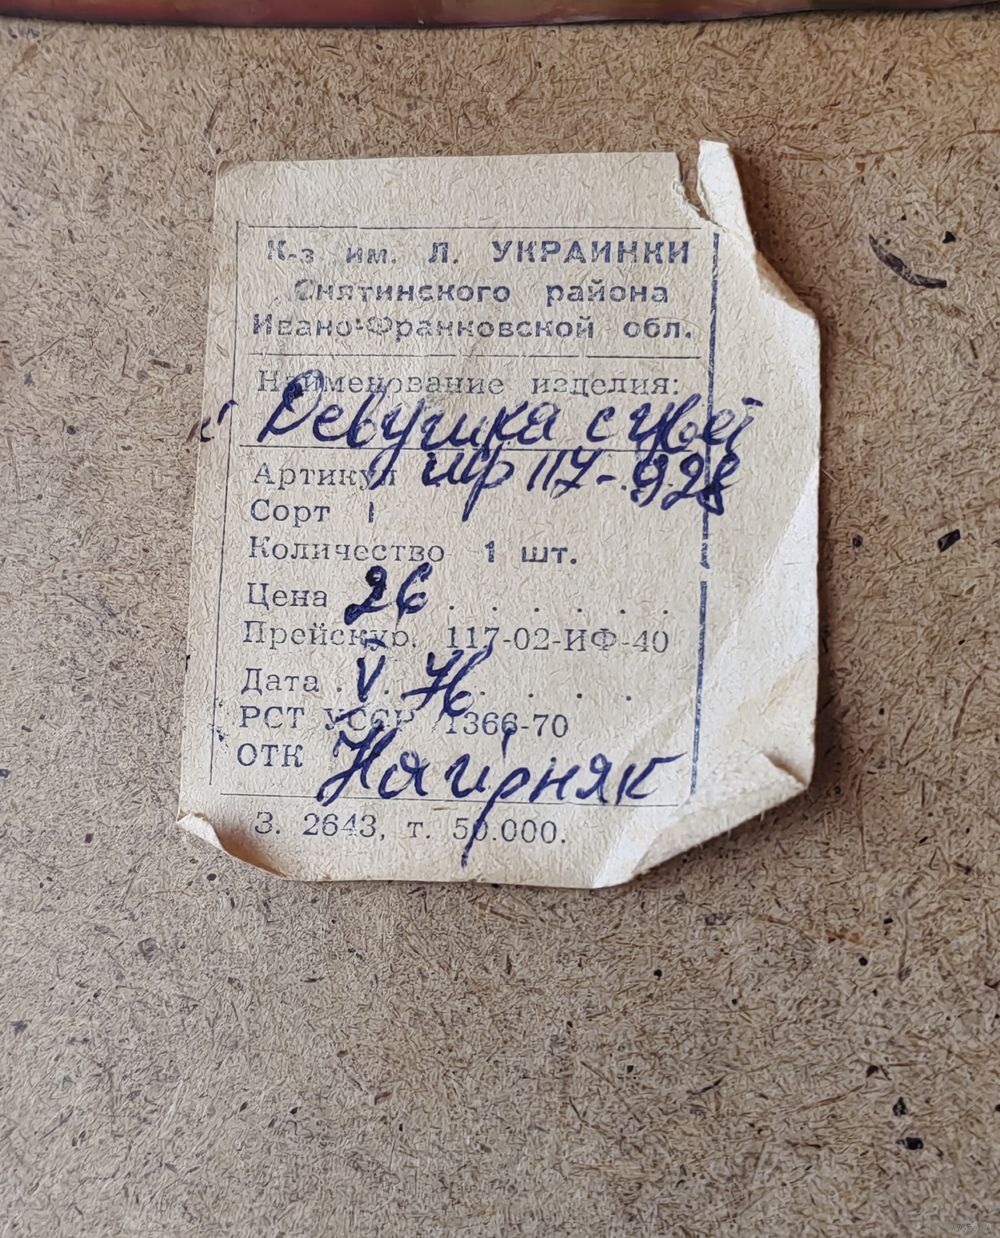 К-з им. Л. УКРАИНКИ
Снятинского района
Ивано-Франковской обл.
Наименование изделия:
Девушка с цвет
Артикул ИФ 117-928
Сорт 1
Количество 1 шт.
Цена 26 . . . . . .
Прейскур. 117-02-ИФ-40
Дата . V . . . . .
РСТ УССР 1366-70
ОТК Нагірняк
З. 2643, т. 50.000.